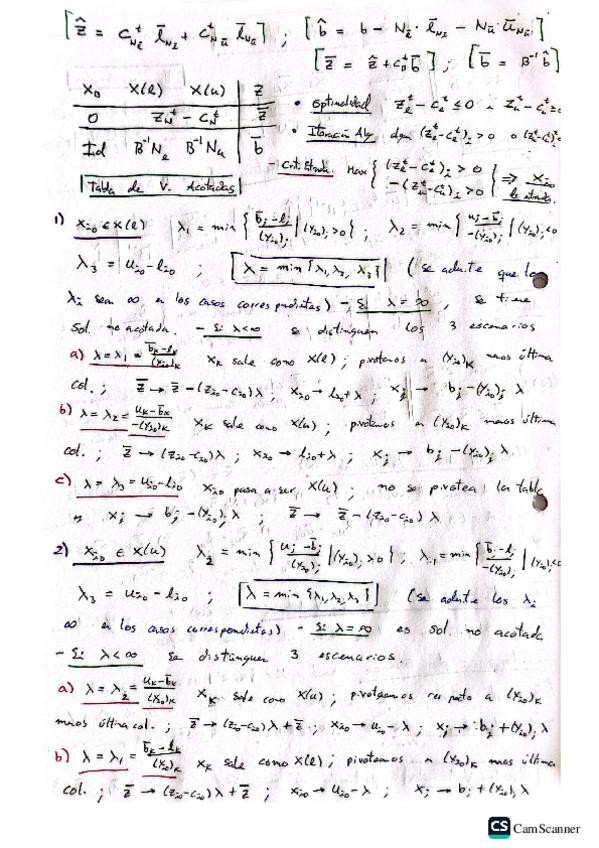 [ẑ = C_{Nl}^t l̄_{Nl} + C_{Nu}^t l̄_{Nu}] ; [b̂ = b - N_l · l̄_{Nl} - N_u ū_{Nu}]
[z̄ = ẑ + C_B^t b̄] ; [b̄ = B^{-1} b̂]
X_B X(l) X(u) | z
0 Z_N^t - C_N^t | z̄
Id B^{-1}N_l B^{-1}N_u | b̄
Tabla de V. Acotadas
• Optimalidad Z_l^t - C_l^t ≤ 0 ∧ Z_u^t - C_u^t ≥
• Iteración Alg (Z_l^t - C_l^t)_i > 0 o (Z_u^t - C_u^t
- Crit. Entrada. Max { (Z_l^t - C_l^t)_i > 0 , -(Z_u^t - C_u^t)_i > 0 } ⇒ X_{i0} la entrada.
1) X_{i0} ∈ X(l) λ_1 = min { (b̄_j - l_j)/(Y_{i0})_j | (Y_{i0})_j > 0 } ; λ_2 = min { (u_j - b̄_j)/-(Y_{i0})_j | (Y_{i0})_j <0
λ_3 = u_{i0} - l_{i0} ; [λ = min {λ_1, λ_2, λ_3}] (se admite que los
λ_i sean ∞ en los casos correspondientes) - Si λ = ∞ , se tiene
sol. no acotada. - Si λ<∞ se distinguen los 3 escenarios
a) λ = λ_1 = (b̄_k - l_k)/(Y_{i0})_k X_k sale como X(l) ; pivotamos a (Y_{i0})_k menos última
col. ; z̄ → z̄ - (z_{i0} - c_{i0}) λ ; X_{i0} → l_{i0} + λ ; X_j → b_j - (Y_{i0})_j λ
b) λ = λ_2 = (u_k - b̄_k)/-(Y_{i0})_k X_k sale como X(u) ; pivotamos a (Y_{i0})_k menos última
col. ; z̄ → (z_{i0} - c_{i0}) λ ; X_{i0} → l_{i0} + λ ; X_j → b_j - (Y_{i0})_j λ
c) λ = λ_3 = u_{i0} - l_{i0} X_{i0} pasa a ser X(u) ; no se pivotea la tabla
y X_j → b_j - (Y_{i0})_j λ ; z̄ → z̄ - (z_{i0} - c_{i0}) λ
2) X_{i0} ∈ X(u) λ_2 = min { (u_j - b̄_j)/(Y_{i0})_j | (Y_{i0})_j > 0 } ; λ_1 = min { (b̄_j - l_j)/-(Y_{i0})_j | (Y_{i0})_j <0
λ_3 = u_{i0} - l_{i0} ; [λ = min {λ_1, λ_2, λ_3}] (se admite los λ_i
∞ en los casos correspondientes) - Si λ = ∞ es sol. no acotada
- Si λ < ∞ se distinguen 3 escenarios.
a) λ = λ_2 = (u_k - b̄_k)/(Y_{i0})_k X_k sale como X(u) ; pivotamos respecto a (Y_{i0})_k
menos última col. ; z̄ → (z_{i0} - c_{i0}) λ + z̄ ; X_{i0} → u_{i0} - λ ; X_j → b_j + (Y_{i0})_j λ
b) λ = λ_1 = (b̄_k - l_k)/(Y_{i0})_k X_k sale como X(l) ; pivotamos a (Y_{i0})_k menos última
col. ; z̄ → (z_{i0} - c_{i0}) λ + z̄ ; X_{i0} → u_{i0} - λ ; X_j → b_j + (Y_{i0})_j λ
CS CamScanner